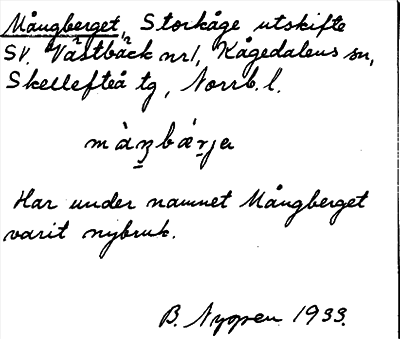 Mångberget, Storkåge utskifte
SV. Västbäck nr 1, Kågedalens sn,
Skellefteå tg, Norrb. l.
Har under namnet Mångberget
varit nybruk.
B. Nygren 1933.